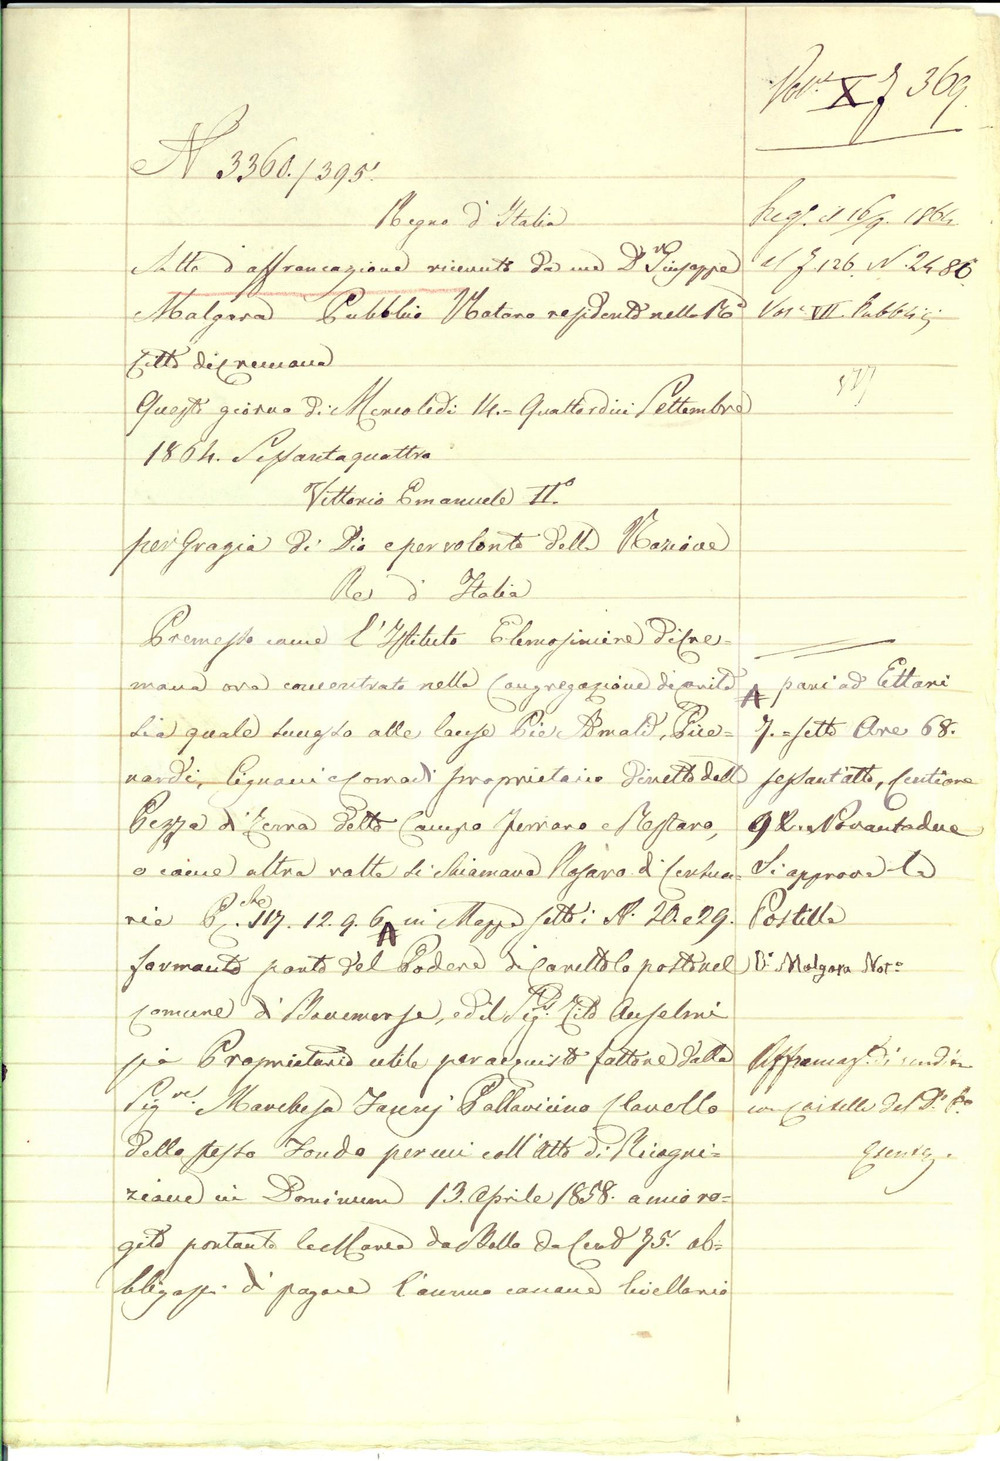 Vol.e X f 369
N 3360./395.
Regno d'Italia
Atto d'affrancazione ricevuto da me Dr Giuseppe
Malgora Pubblico Notaro residente nella Ra
Città di Cremona
Questo giorno di Mercoledì 14.= Quattordici Settembre
1864. Sessantaquattro
Vittorio Emanuele II.o
per Grazia di Dio e per volontà della Nazione
Re d'Italia
Premesso come l'Istituto Elemosiniere di Cre=
mona ora concentrato nella Congregazione di Carità
sia quale successo alle cause Pie Amati, Pue=
rardi, Lignani e Corradi proprietario diretto della
Pezza di Terra detta Campo Ferraro e Restaro,
o come altra volta si chiamava Rosaro di Censua=
rie Pche 117. 12. 9. 6 A in Mappa sotto i N. 20. e 29.
formante parte del Podere di Canettolo posto nel
Comune di Bonemerse, ed il Sigr Tito Anselmi
già Proprietario utile per acquisto fattone dalla
Sigra. Marchesa Pallavicino Clavello
dello stesso Fondo per cui coll'Atto di Ricogni=
zione in Dominum 13. Aprile 1858. a mio ro=
gito portante la Marca da Bollo da Cent 75. ob=
bligossi di pagare l'annuo canone livellario
Reg. il 16/9. 1864
al f. 126. N. 2486.
Vol. VII Pubblici
A pari ad Ettari
7.= sette Are 68.
sessant'otto, Centiare
92.= Novantadue
Si approva la
Postilla
Dr Malgora Notо
Affrancaz. di rendite
con Cartelle del Do Po
Esente.